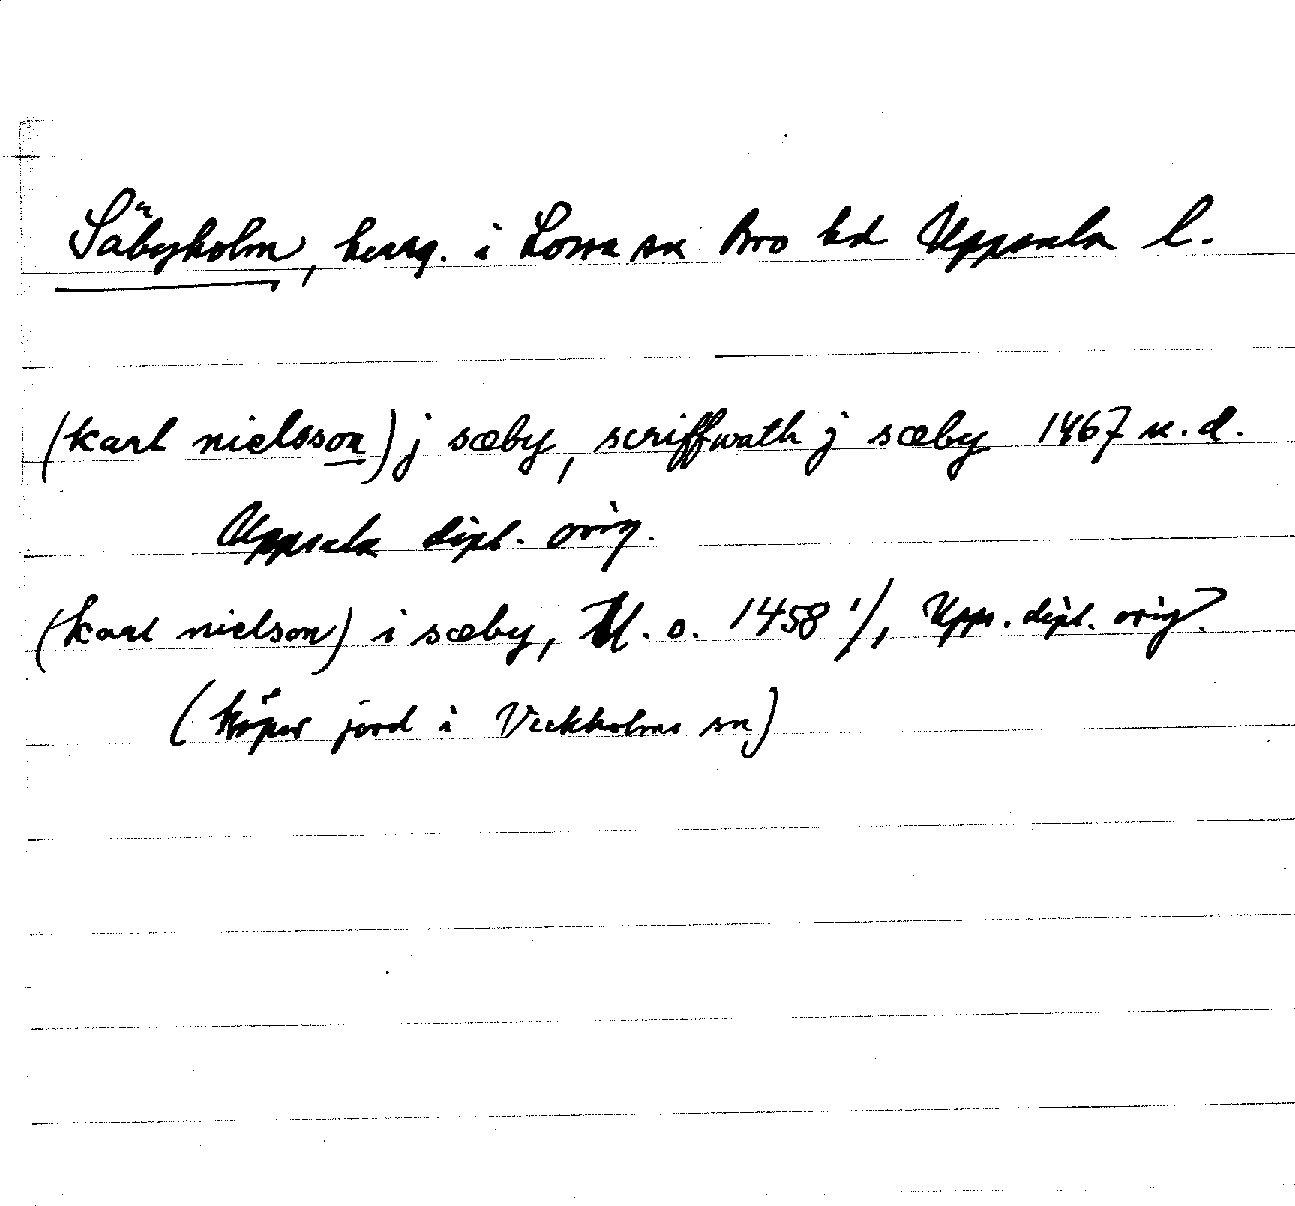 Säbyholm, herrg. i Låssa sn Bro hd Uppsala l.
(karl nielsson) j sæby, scriffwath j sæby 1467 u.d.
Uppsala dipl. orig.
(karl nielson) i sæby, U. o. 1458 1/, Upps. dipl. orig?
(köper jord i Veckholms sn)